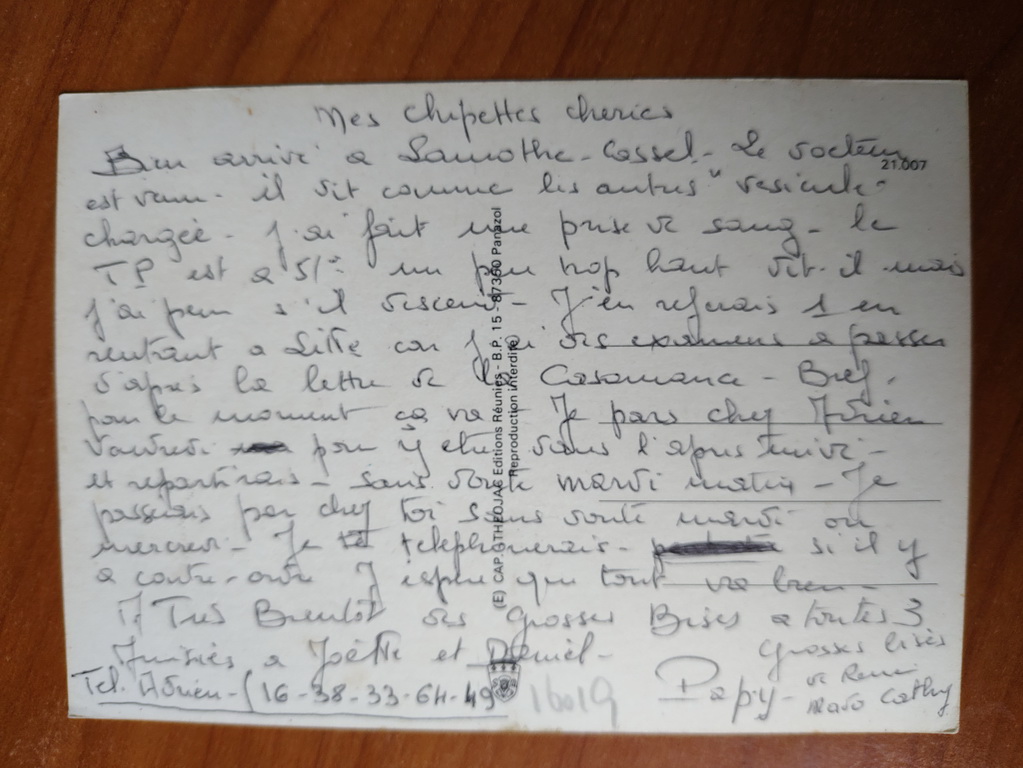 Mes Chipettes cheries
Bien arrivé a Lamothe-Cassel - Le docteur
21.007
est venu - il dit comme les autres " vesicule -
chargée - j'ai fait une prise de sang - le
TP est a 51% un peu trop haut dit-il mais
j'ai peur s'il descend - J'en referais 1 en
rentant a Lille car j'ai des examens a passer
d'après la lettre de la Casamance - Bref,
pour le moment ça va - Je pars chez Adrien
Vendredi pour y etre dans l'apres midi -
et repartirais - sans doute mardi matin - Je
passerais par chez toi sans doute mardi ou
mercredi - Je te telephonerais - si il y
a contre-ordre J'espere que tout va bien -
A Tres Bientôt des grosses Bises a toutes 3
Amitiés a Joëlle et Daniel -
Grosses bises
de Remi
Maro Cathy
Papy -
Tel. Adrien - (16-38-33-64-49
16019
(E) CAP-THEOJAC Editions Réunies - B.P. 15 - 87350 Panazol
Reproduction interdite)